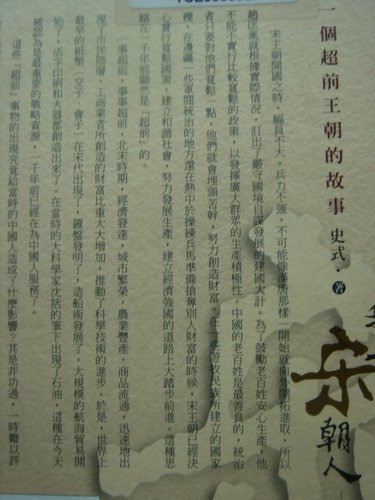 一個超前王朝的故事
史式・著
宋朝人
宋王朝開國之時,幅員不大,兵力不強,不可能像漢唐那樣一開始就向外開拓進取,所以
趙匡胤就根據實際情況,訂出了嚴守國境自謀發展的建國大計。為了鼓勵老百姓安心生產,他
不能不實行比較寬鬆的政策,以發揮廣大群眾的生產積極性。中國的老百姓是最善良的,統治
者只要對他們寬鬆一點,他們就會埋頭苦幹,努力創造財富。在一些遊牧民族所建立的國家
裡,在邊疆一些軍閥統治的地方還在熱中於操練兵馬準備搶奪別人財富的時候,宋王朝已經決
心實行寬鬆國策,建立和諧社會,努力發展生產,建立經濟強國的道路上大踏步前進。這種思
路在一千年前顯然是「超前」的。
一事超前,事事超前,北宋時期,經濟發達,城市繁榮,農業豐產,商品流通,迅速地出
現了市民階層,工商業者所創造的財富比重大大增加,推動了科學技術的進步。於是,世界上
最早的紙幣(交子、會子)在宋代出現了,羅盤發明了,造船術發展了,大規模的航海貿易開
始了,活字印刷和火器都創造出來了。在當時的大科學家沈括的筆下出現了石油,這種在今天
被認為是最重要的戰略資源,一千年前已經在為中國人服務了。
這些「超前」事物的出現究竟給當時的中國人造成了什麼影響?其是非功過,一時難以評